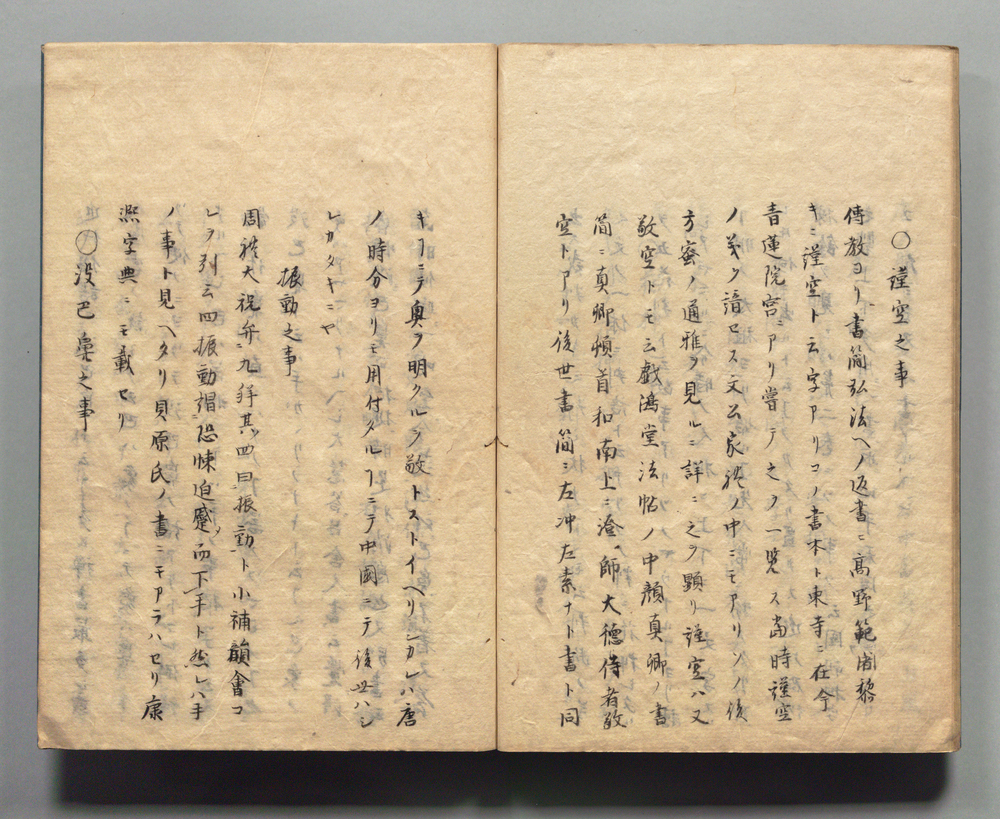 ○謹空之事
傳教ヨリ書簡弘法ヘノ返書ニ高野範闍黎
キニ謹空ト云字アリコノ書本ト東寺ニ在今
青蓮院宮ニアリ嘗テ之ヲ一覧ス當時謹空
ノ義ヲ諳セス文公家禮ノ中ニモアリソノ後
方蜜ノ通雅ヲ見ルニ詳ニ之ヲ顕リ謹空ハ又
敬空トモ云戯鴻堂法帖ノ中顔真卿ノ書
簡ニ真卿頓首和南上ニ澄師大德侍者敬
空トアリ後世書簡ニ左冲左素ナト書ト同
キヿニテ奥ヲ明クルヲ敬トストイヘリシカレハ唐
ノ時分ヨリモ用付タルヿニテ中國ニテ後世ハシ
レカタキニヤ
振動之事
周禮大祝弁九拜其四曰振動ト小補韻會コ
レヲ列云四振動謂恐悚迫蹙而下手ト然レハ手
ノ事ト見ヘタリ貝原氏ノ書ニモアラハセリ康
熈字典ニモ載セリ
○没巴鼻之事